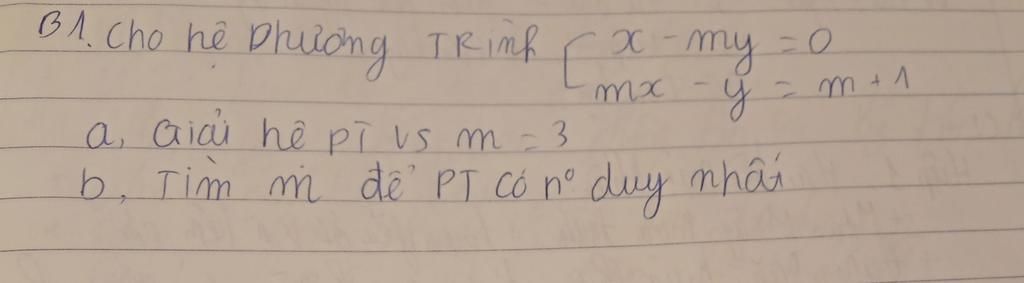 B1. Cho hệ Phương TRình { x - my = 0
mx - y = m + 1
a, Giải hê PT vs m = 3
b, Tìm m để PT có nº duy nhất